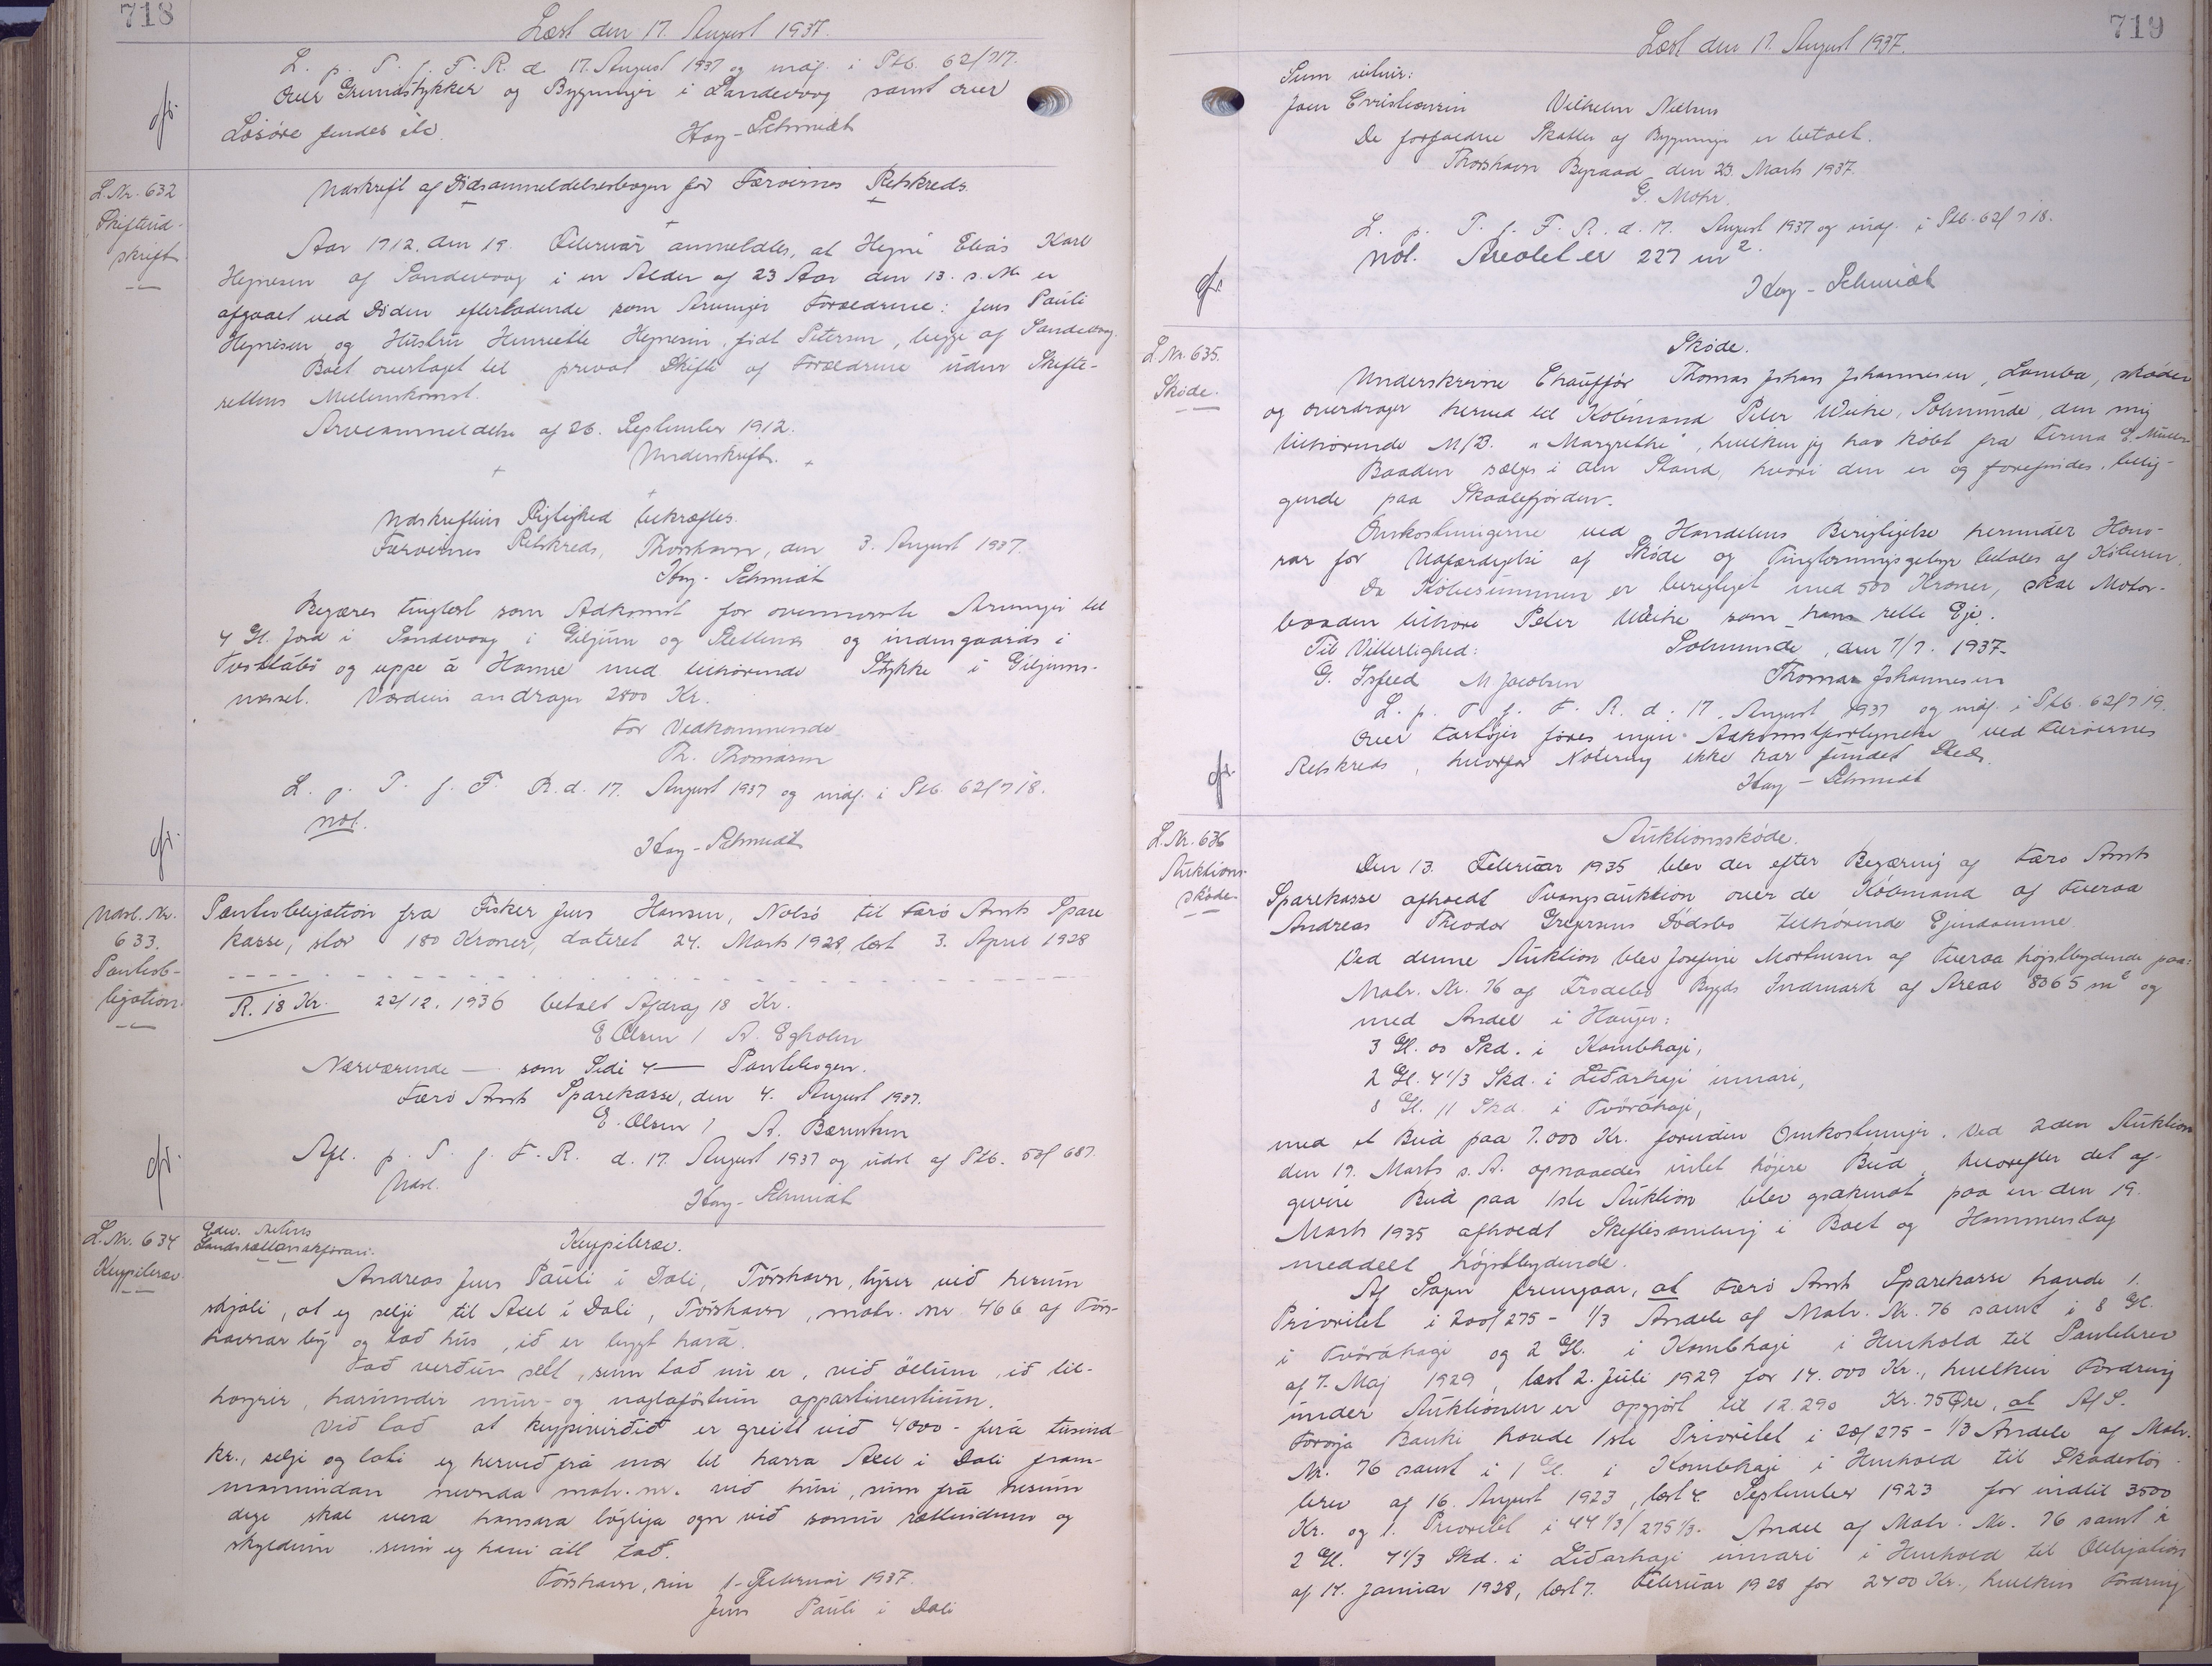 718
Læst den 17. August 1937.
L. p. T. f. F. R. d. 17. August 1937 og indf. i Ptb. 62/717.
Over Grundstykker og Bygninger i Sandevaag samt over
Løsøre findes ell.
Hoy-Schmidt
L. Nr. 632
Skifteud-
skrift
Udskrift af Dødsanmeldelsesbogen for Færøernes Retskreds.
Aar 1912, den 19. Februar anmeldtes, at Hejne Elias Karl
Hejnesen af Sandevaag i en Alder af 23 Aar den 13. s. M. er
afgaaet ved Døden efterladende som Arvinger Forældrene: Jens Pauli
Hejnesen og Hustru Henriette Hejnesen, født Petersen, begge af Sandevaag.
Boet overtaget til privat Skifte af Forældrene uden Skifte-
rettens Mellemkomst.
Arveanmeldelse af 26. September 1912.
Underskrift.
Udskriftens Rigtighed bekræftes.
Færøernes Retskreds, Thorshavn, den 3. August 1937.
Hoy-Schmidt
Begæres tinglæst som Adkomst for ovennævnte Arvinger til
4 Gl. Jord i Sandevaag i Giljum og Slettenes og indengaards i
Tvistlábö og uppe á Hamre med tilhørende Stykke i Giljums-
næsset. Værdien andrager 2800 Kr.
For Vedkommende
Th. Thomasen
L. p. T. f. F. R. d. 17. August 1937 og indf. i Ptb. 62/718.
not.
Hoy-Schmidt
Udsl. Nr.
633.
Pantob-
ligation
Pantobligation fra Fisker Jens Hansen, Nolsø til Færø Amts Spare
kasse, stor 180 Kroner, dateret 24. Marts 1928, læst 3. April 1928
R. 18 Kr. 22/12. 1936 betalt Afdrag 18 Kr.
E Olsen / A. Egholm
Nærværende — som Side 4 — Pantebogen.
Færø Amts Sparekasse, den 4. August 1937.
E. Olsen / A. Bærentsen
Afl. p. T. f. F. R. d. 17. August 1937 og udsl. af Ptb. 53/687.
Udsl.
Hoy-Schmidt
L. Nr. 634
Keypibræv
Edw.
Landsrættarsakførari.
Keypibræv.
Andreas Jens Páuli í Dali, Tórshavn, lýsir við hesum
skjali, at eg selji til Axel í Dali, Tórshavn, matr. nr. 466 af Tórs-
havnar bý og tað hús, ið er bygt hará.
Tað verður selt, sum tað nú er, við öllum, ið til-
hoyrir, harundir múr- og naglaföstum appartinentium.
Við tað at keypivirðið er greitt við 4000 - fýra túsind
kr., selji og lati eg hervið frá mær til harra Axel í Dali fram-
manundan nevnda matr. nr. við húsi, sum frá hesum
degi skal vera hansara lógliga ogn við somu rættindum og
skyldum sum eg havi átt tað.
Tórshavn, hin 1. Februar 1937.
Jens Pauli í Dali
719
Læst den 17. August 1937.
Sum vitnir:
Joen Christiansen Vilhelm Nielsen
De forfaldne Skatter af Bygninger er betalt.
Thorshavn Byraad, den 23. Marts 1937.
G. Mohr.
L. p. T. f. F. R. d. 17. August 1937 og indf. i Ptb. 62/718.
not. Arealet er 227 m2.
Hoy-Schmidt
L. Nr. 635.
Skøde.
Skøde.
Underskrevne Chauffør Thomas Johan Johannesen, Lamba, skøder
og overdrager herved til Købmand Peter Weihe, Solmunde, den mig
tilhørende M/B. "Margrethe", hvilken jeg har købt fra Firma E. Müller
Baaden sælges i den Stand, hvori den er og forefindes, belig-
gende paa Skaalefjorden.
Omkostningerne ved Handelens Berigtigelse herunder Hono-
rar for Udfærdigelse af Skøde og Tinglæsningsgebyr betales af Køberen.
Da Købesummen er berigtiget med 500 Kroner, skal Motor-
baaden tilhøre Peter Weihe som hans rette Eje.
Til Vitterlighed:
Solmunde, den 7/7. 1937.
G. Isfeld M Jacobsen
Thomas Johannesen
L. p. T. f. F. R. d. 17. August 1937 og indf. i Ptb. 62/719.
Over Fartøjer føres ingen Adkomstfortegnelse ved Færøernes
Retskreds, hvorfor Notering ikke har fundet Sted.
Hoy-Schmidt
L. Nr. 636
Auktions-
skøde
Auktionsskøde.
Den 13. Februar 1935 blev der efter Begæring af Færø Amts
Sparekasse afholdt Tvangsauktion over de Købmand af Tveraa
Andreas Theodor Gregersens Dødsbo tilhørende Ejendomme.
Ved denne Auktion blev Josefine Mortensen af Tveraa højstbydende paa:
Matr. Nr. 76 af Frodebø Bygds Indmark af Areal 8065 m2 og
med Andel i Hauger:
3 Gl. 00 Skd. i Kambhagi,
2 Gl. 4 1/3 Skd. i Liðarhagi innari,
8 Gl. 11 Skd. i Tvöráhagi,
med et Bud paa 7.000 Kr. foruden Omkostninger. Ved 2den Auktion
den 19. Marts s. A. opnaaedes intet højere Bud, hvorefter det af-
givne Bud paa 1ste Auktion blev godkendt paa en den 19.
Marts 1935 afholdt Skiftesamling i Boet og Hammerslag
meddelt højstbydende.
Af Sagen fremgaar, at Færø Amts Sparekasse havde 1.
Prioritet i 200/275 - 1/3 Andele af Matr. Nr. 76 samt i 8 Gl.
i Tvöráhagi og 2 Gl. i Kambhagi i Henhold til Pantebrev
af 7. Maj 1929, læst 2. Juli 1929 for 14.000 Kr., hvilken Fordring
under Auktionen er opgjort til 12.290 Kr. 75 Øre, at A/S.
Føroya Banki havde 1ste Prioritet i 20/275 - 1/3 Andele af Matr.
Nr. 76 samt i 1 Gl. i Kambhagi i Henhold til Skadesløs-
brev af 16. August 1923, læst 4. September 1923 for indtil 3500
Kr. og 1. Prioritet i 44 1/3/275 1/3. Andel af Matr. Nr. 76 samt i
2 Gl. 4 1/3 Skd. i Liðarhagi innari i Henhold til Obligation
af 14. Januar 1928, læst 7. Februar 1928 for 2400 Kr., hvilken Fordring